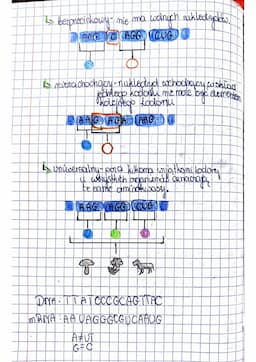 ↳ bezprzecinkowy - nie ma wolnych nukleotydów
AAG C AGG CUG
↳ niezachodzący - nukleotyd wchodzący w skład
jednego kodonu nie może być elementem
kolejnego kodonu
AAG AGA AAG
↳ uniwersalny - poza kilkoma wyjątkami kodony
u wszystkich organizmów oznaczają
te same aminokwasy.
AAG AGG CUG
DNA: TTATCCCGCAGTTAC
mRNA: AAUAGGGCGUCAAUG
A≠UT
G=C